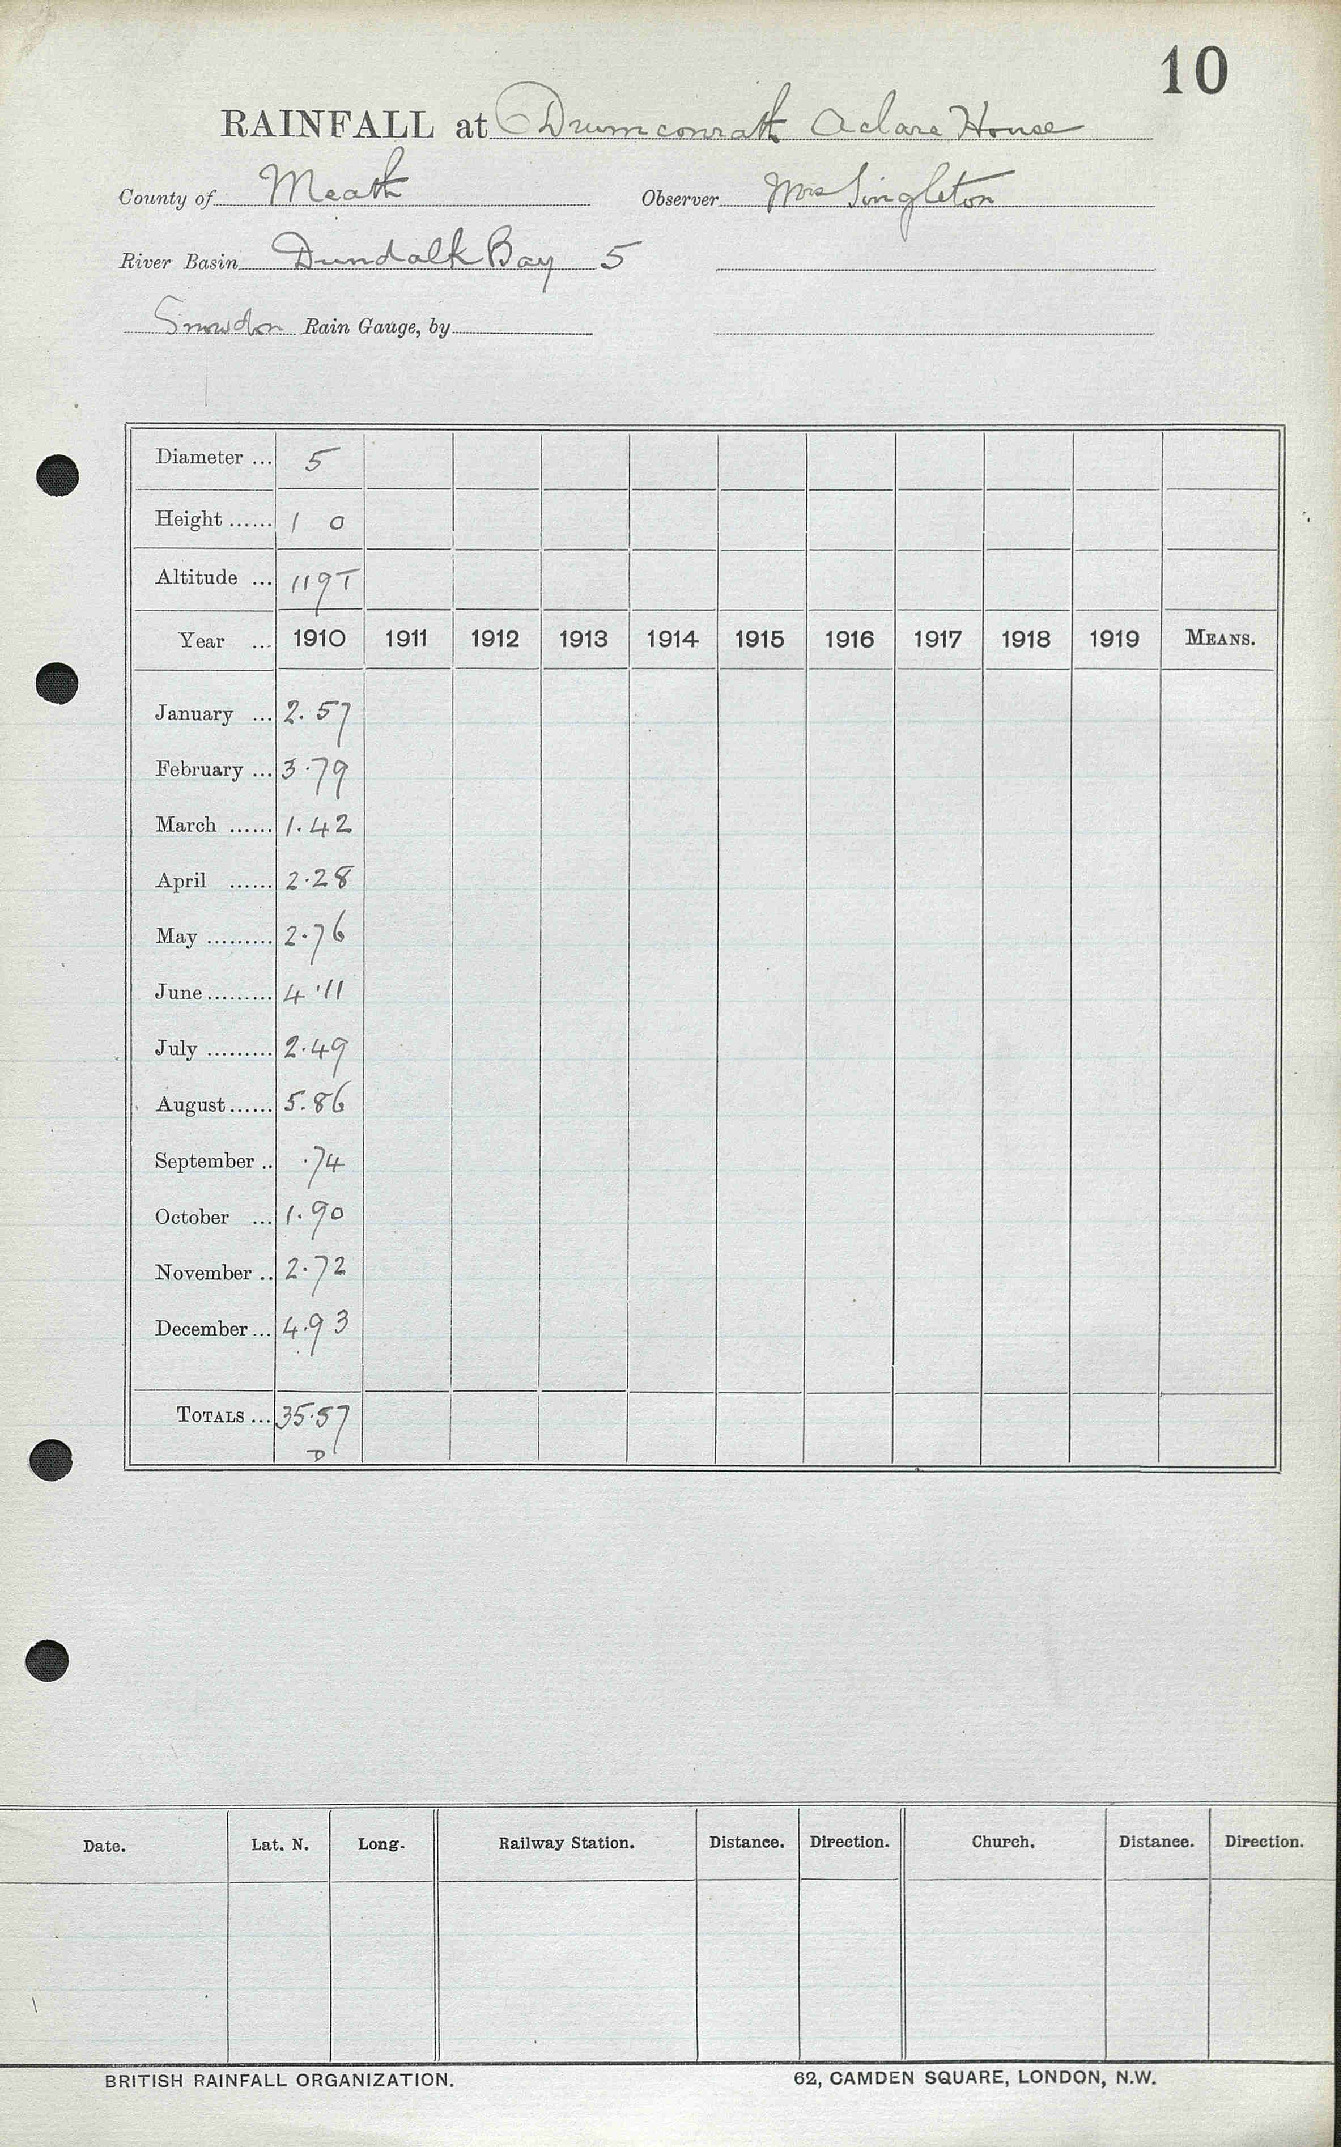 10
RAINFALL at Drumconrath Aclare House
County of Meath Observer Mrs Singleton
River Basin Dundalk Bay 5
Snowdon Rain Gauge, by
Diameter ... 5
Height ...... 1 0
Altitude ... 119T
Year ... 1910 1911 1912 1913 1914 1915 1916 1917 1918 1919 MEANS.
January ... 2.57
February ... 3.79
March ...... 1.42
April ...... 2.28
May ......... 2.76
June ......... 4.11
July ......... 2.49
August ...... 5.86
September .. .74
October ... 1.90
November .. 2.72
December ... 4.93
TOTALS ... 35.57
D
Date. Lat. N. Long. Railway Station. Distance. Direction. Church. Distance. Direction.
BRITISH RAINFALL ORGANIZATION. 62, CAMDEN SQUARE, LONDON, N.W.